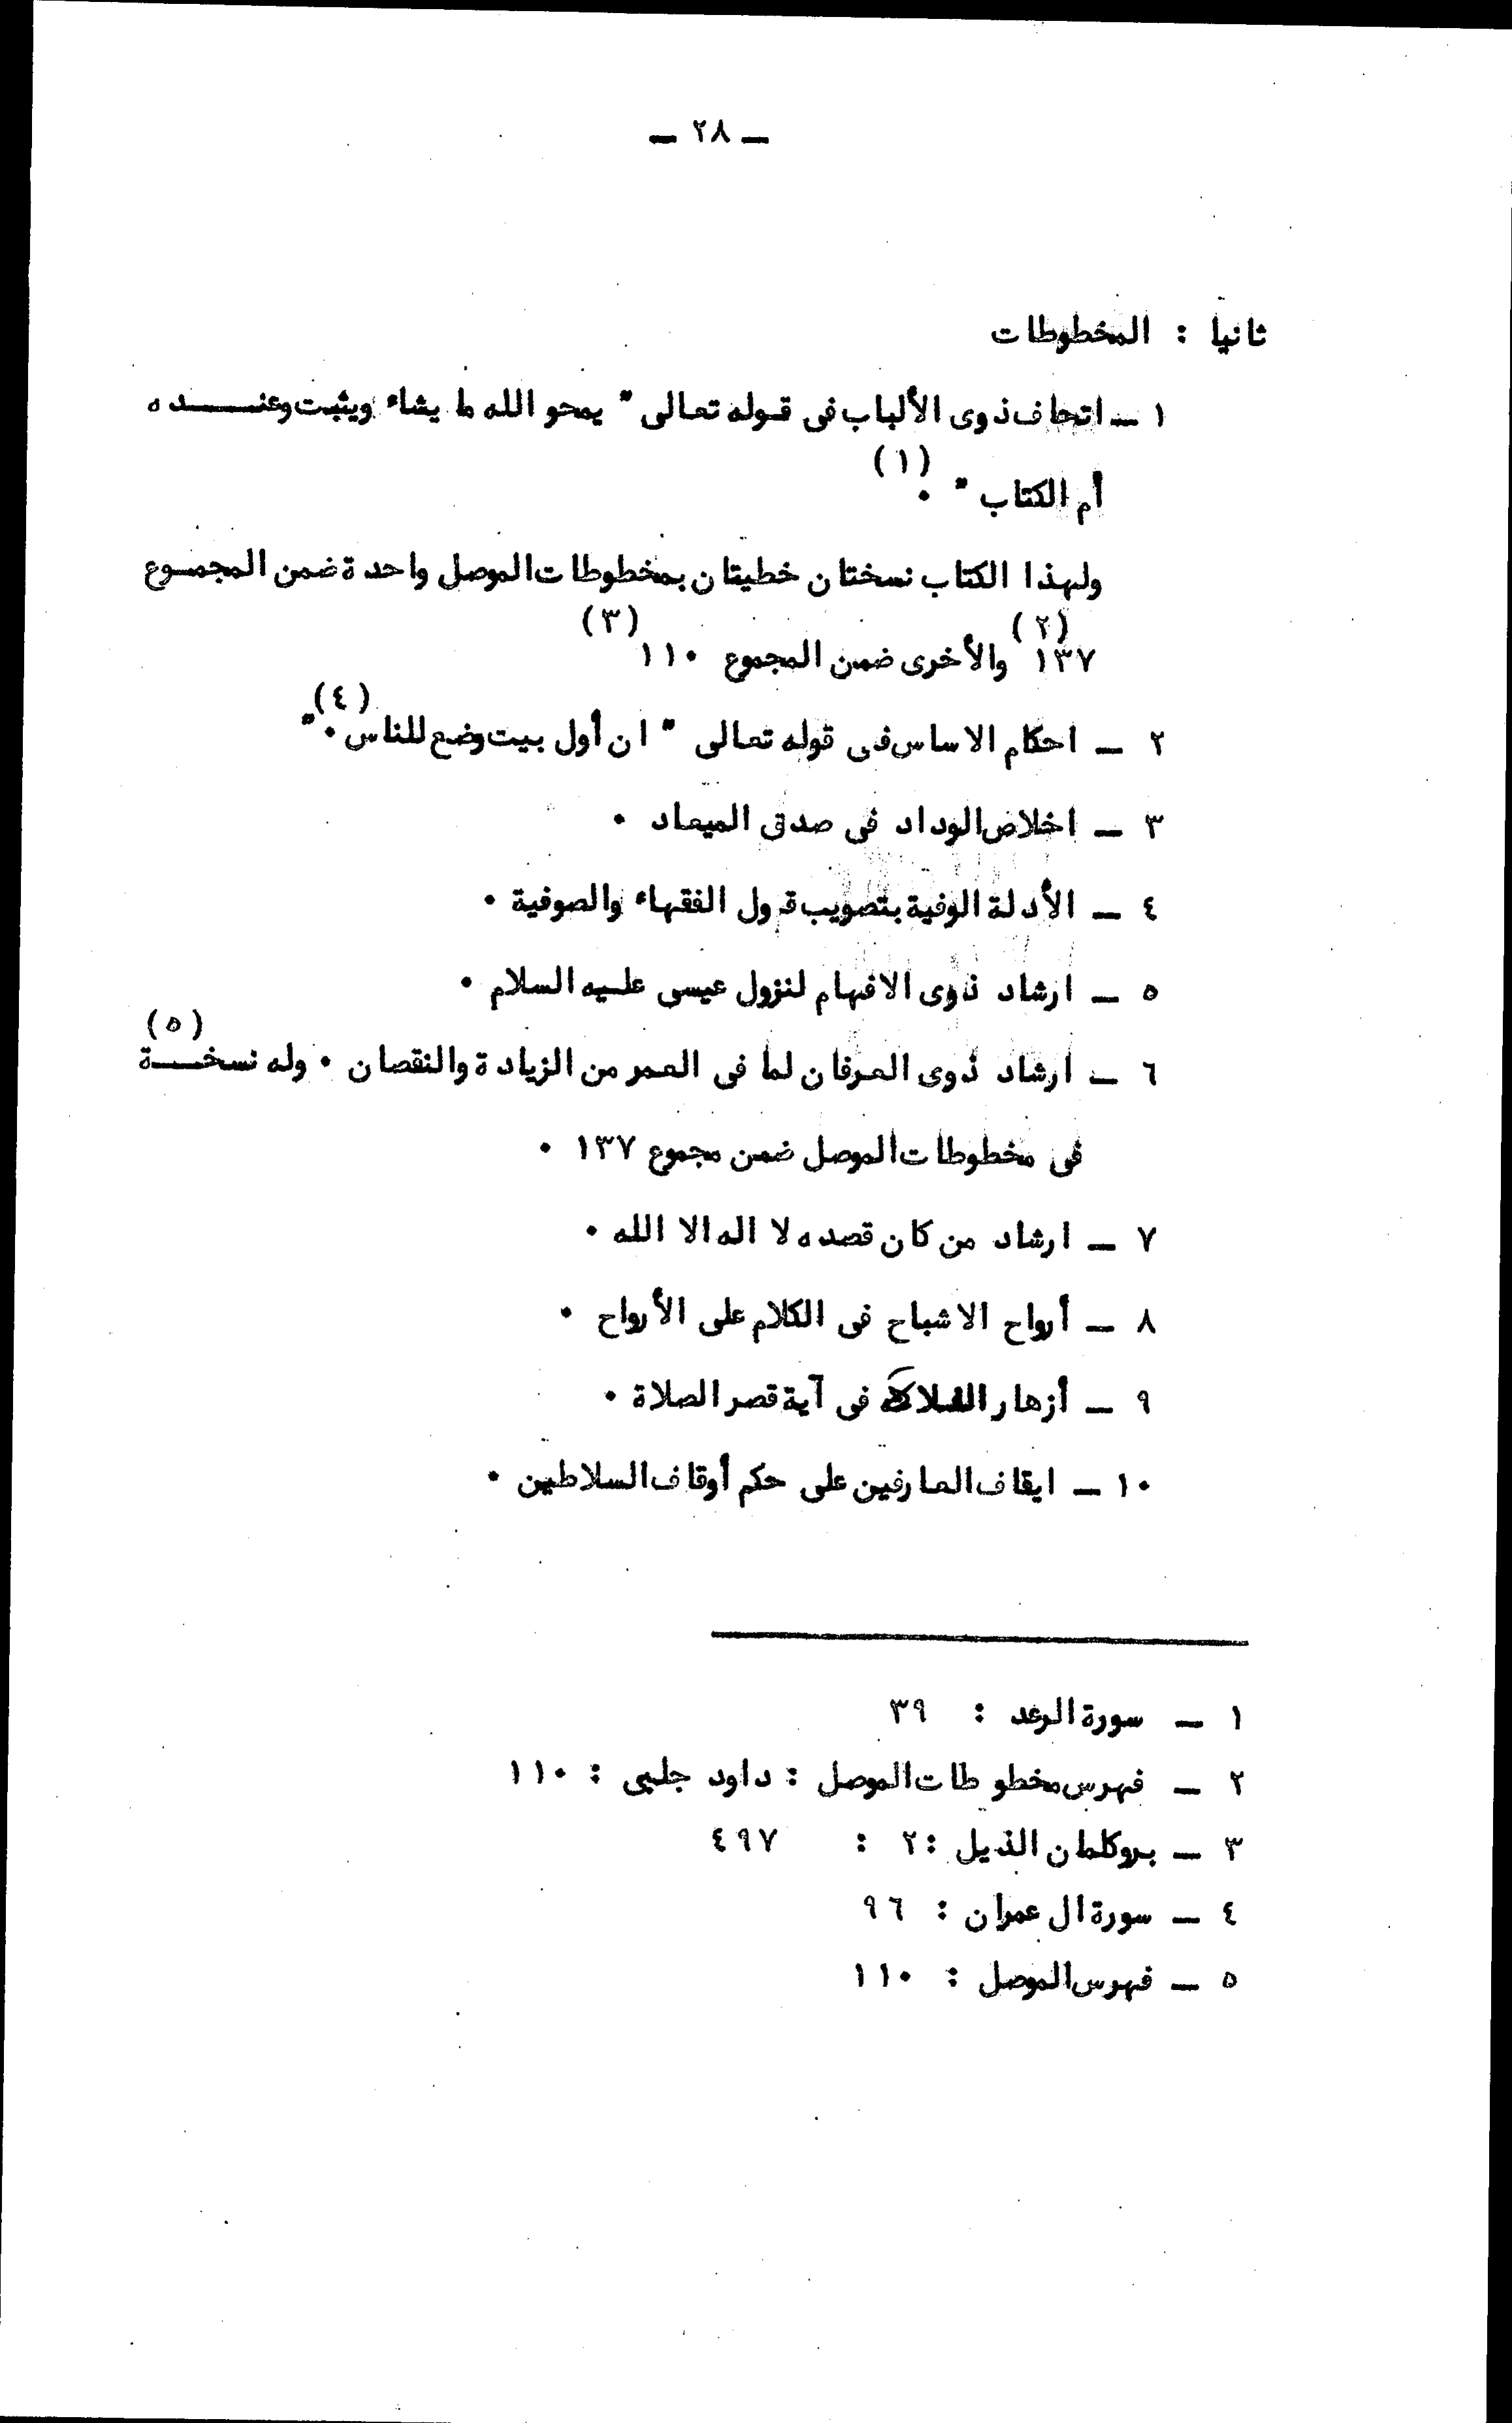 — ٢٨ —
ثانيا : المخطوطات
١ — اتحاف ذوى الألباب فى قوله تعالى " يمحو الله ما يشاء ويثبت وعنـــــده
(١)
أم الكتاب " .
ولهذا الكتاب نسختان خطيتان بمخطوطات الموصل واحدة ضمن المجمــوع
(٢) (٣)
١٣٧ والأخرى ضمن المجموع ١١٠
(٤)
٢ — احكام الاساس فى قوله تعالى " ان أول بيت وضع للناس . "
٣ — اخلاص الوداد فى صدق الميعاد .
٤ — الأدلة الوفية بتصويب قول الفقهاء والصوفية .
٥ — ارشاد ذوى الافهام لنزول عيسى عليه السلام .
(٥)
٦ — ارشاد ذوى العرفان لما فى العمر من الزيادة والنقصان . وله نسخـــة
فى مخطوطات الموصل ضمن مجموع ١٣٧ .
٧ — ارشاد من كان قصده لا اله الا الله .
٨ — أرواح الاشباح فى الكلام على الأرواح .
٩ — أزهار فى آية قصر الصلاة .
١٠ — ايقاف العارفين على حكم أوقاف السلاطين .
١ — سورة الرعد : ٣٩
٢ — فهرس مخطوطات الموصل : داود جلبى : ١١٠
٣ — بروكلمان الذيل : ٢ : ٤٩٧
٤ — سورة ال عمران : ٩٦
٥ — فهرس الموصل : ١١٠